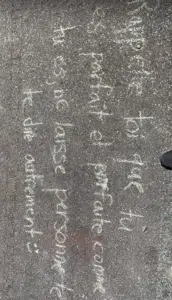 Rappelle toi que tu
es parfait et parfaite comme
tu es ne laisse personne te
te dire autrement :)